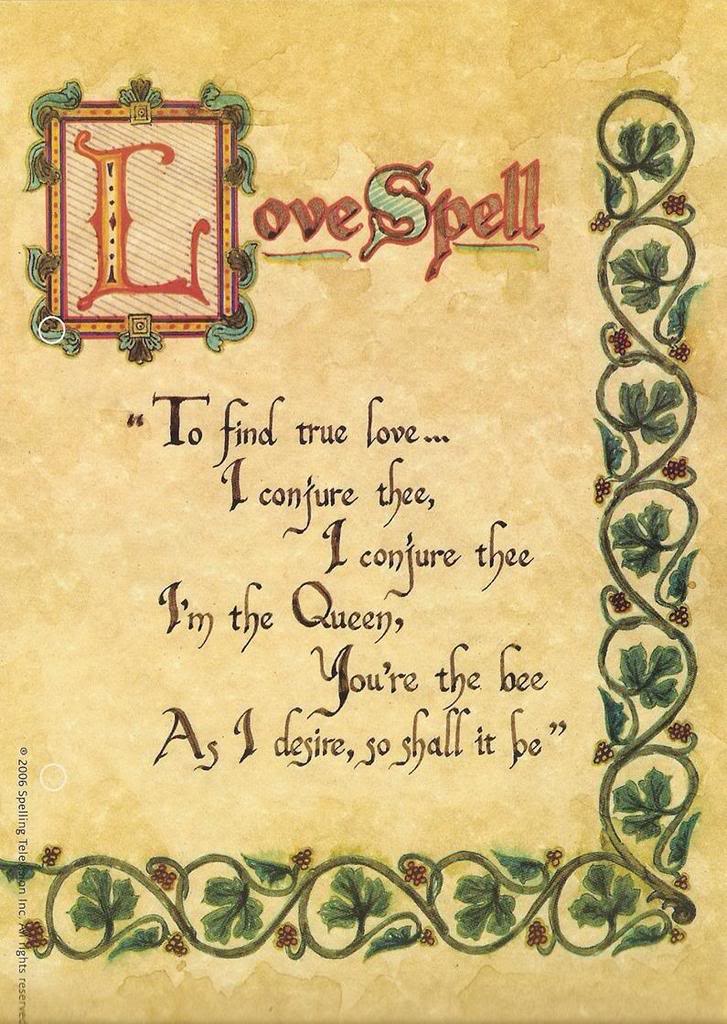 Love Spell
“To find true love...
I conjure thee,
I conjure thee
I'm the Queen,
You're the bee
As I desire, so shall it be”
® 2006 Spelling Television Inc. All rights reserved